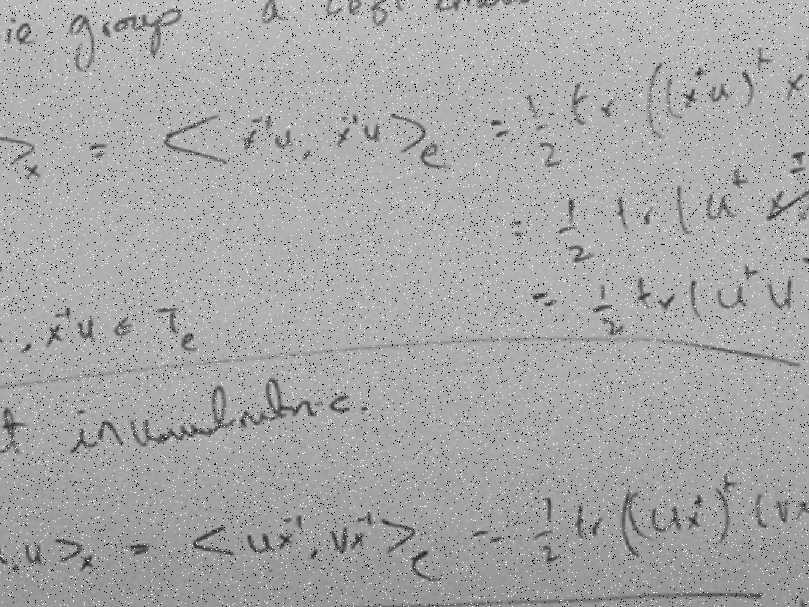 ie group a
>_x = < x^{-1}u, x^{-1}u >_e = 1/2 tr ((x^{-1}u)^t x
= 1/2 tr ( u^t x
= 1/2 tr ( u^t u
, x^{-1}u ∈ T_e
t
, u >_x = < ux^{-1}, vx^{-1} >_e = 1/2 tr ((ux^{-1})^t (vx